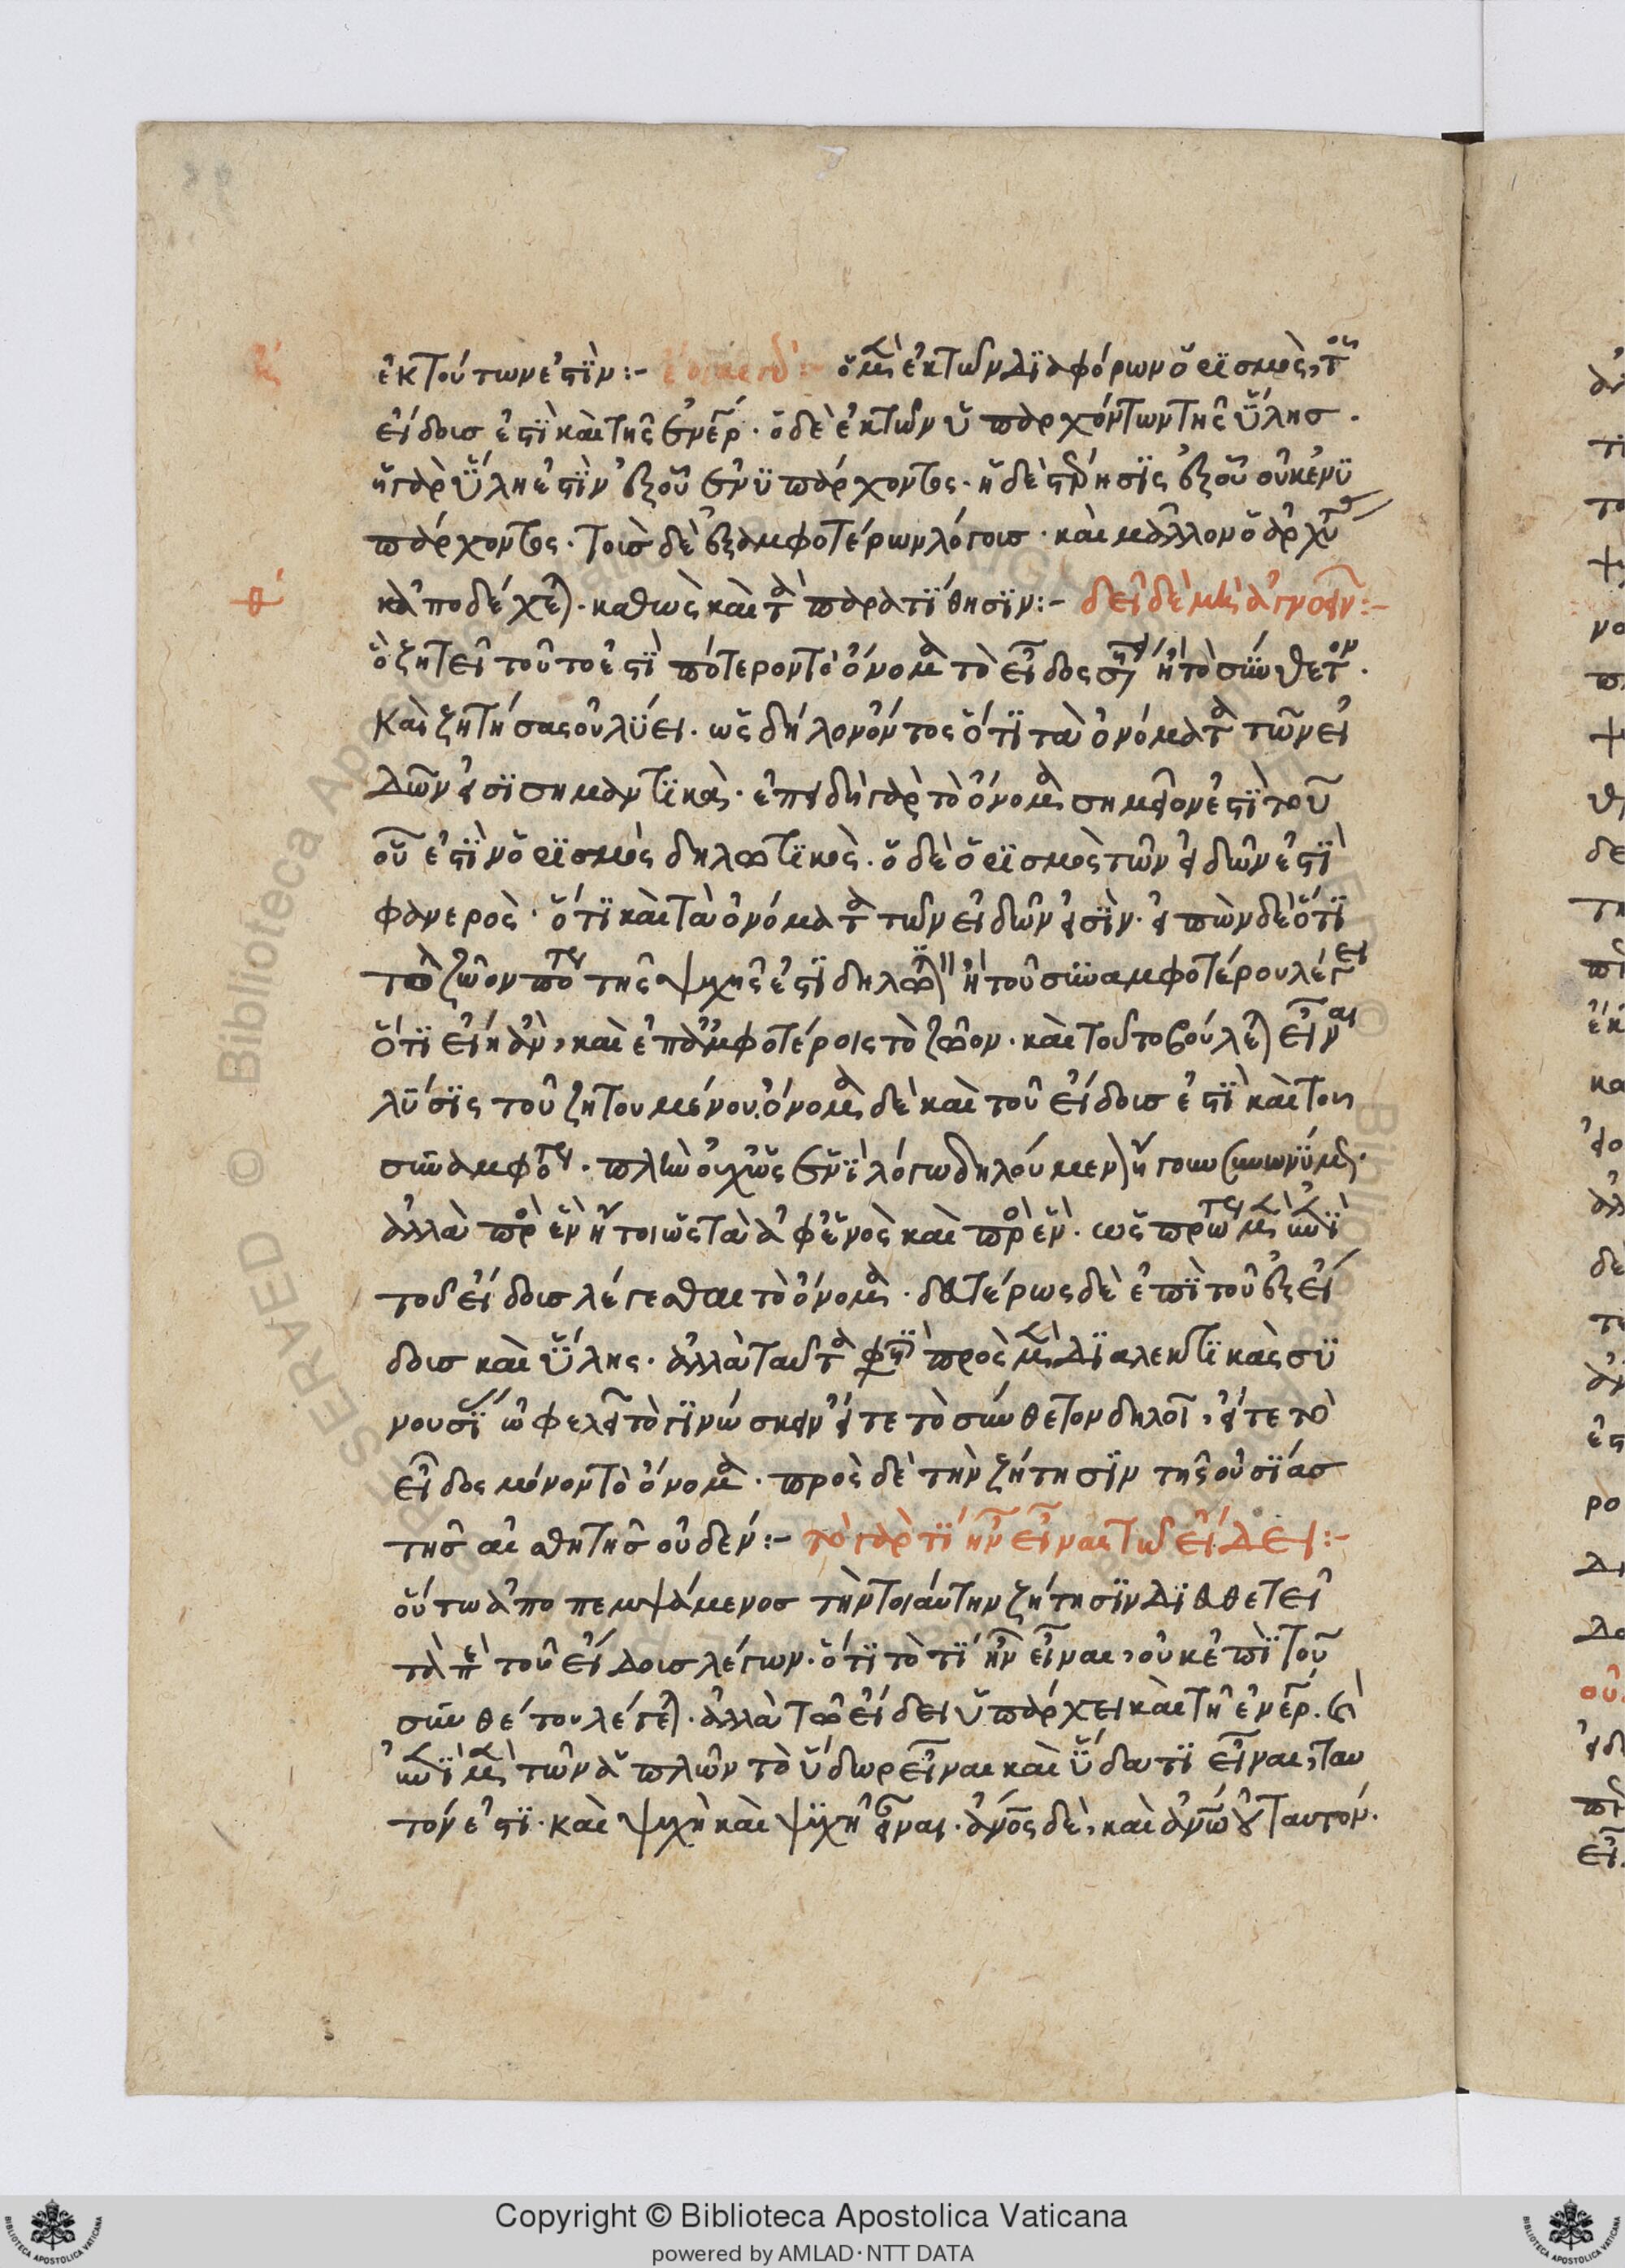 ἐκ τούτων ἐστὶν :- ὁ μὲν ἐκ τῶν διαφόρων ὁρισμὸς, τοῦ
εἴδους ἐστὶ καὶ τῆς ἐνερ . ὁ δὲ ἐκ τῶν ὑπαρχόντων τῆς ὕλης .
ἡ γὰρ ὕλη ἐστὶν ἐξ οὗ ἐνϋπάρχοντος . ἡ δὲ στέρησις ἐξ οὗ οὐκ ἐνϋ
πάρχοντος . τοῖς δὲ ἐξ ἀμφοτέρων λόγοις . καὶ μᾶλλον ὁ ἀρχύτ
κἀποδέχε . καθὼς καὶ τὰ παρατίθησιν :- δεῖ δὲ μὴ ἀγνοεῖν :-
ὃ ζητεῖ τοῦτο ἐστὶ πότερον τὸ ὄνομα τὸ εἶδος ση ἢ τὸ σύνθετον .
καὶ ζητήσας οὐ λύει . ὡς δήλον ὄντος ὅτι τὰ ὀνόματα τῶν εἰ
δῶν εἰσι σημαντικὰ . ἐπειδὴ γὰρ τὸ ὄνομα σημεῖον ἐστὶ τοῦ
οὗ ἐστὶν ὁρισμὸς δηλωτικὸς . ὁ δὲ ὁρισμὸς τῶν εἰδῶν ἐστὶ
φανερὸς . ὅτι καὶ τὰ ὀνόματα τῶν εἰδῶν εἰσὶν . εἰπὼν δὲ ὅτι
τὸ ζῶον πο τῆς ψυχῆς ἐστὶ δηλω ἢ τοῦ συναμφοτέρου λέγει
ὅτι εἴη ἂν, καὶ ἐπ ἀμφοτέροις τὸ ζῶον . καὶ τοῦτο βούλε εἶναι
λύσις τοῦ ζητουμένου . ὄνομα δὲ καὶ τοῦ εἴδους ἐστὶ καὶ τοῦ
συναμφο . πλὴν οὐχ ὡς ἑνὶ λόγω δηλούμεν ἤγουν συνωνύμ .
ἀλλὰ πρ ἓν ἤτοι ὡς τὰ ἀφ ἑνὸς καὶ πρ ἓν . ὡς πρω μὲν ἐπὶ
τοῦ εἴδους λέγεσθαι τὸ ὄνομα . δευτέρως δὲ ἐπὶ τοῦ ἐξ εἴ
δους καὶ ὕλης . ἀλλὰ ταῦτα φησὶ πρὸς μὲν διαλεκτικὰς συ
νουσί ὠφελεῖ τὸ γινώσκειν εἴτε τὸ σύνθετον δηλοῖ, εἴτε τὸ
εἶδος μόνον τὸ ὄνομα . πρὸς δὲ τὴν ζήτησιν τῆς οὐσίας
τῆς αἰσθητῆς οὐδέν :- τὸ γὰρ τί ἦν εἶναι τῶ εἴδει :-
οὕτω ἀποπεμψάμενος τὴν τοιαύτην ζήτησιν διευθετεῖ
τὰ πε τοῦ εἴδους λέγων . ὅτι τὸ τί ἦν εἶναι, οὐκ ἐπὶ τοῦ
συνθέτου λέγε . ἀλλὰ τῶ εἴδει ὑπάρχει καὶ τῆ ἐνερ .
ἐπὶ μὲν τῶν ἁπλῶν τὸ ὕδωρ εἶναι καὶ ὕδατι εἶναι, ταυ
τόν ἐστι . καὶ ψυχὴ καὶ ψυχῆ εἶναι . ἄνος δὲ, καὶ ἀνω οὐ ταυτόν .